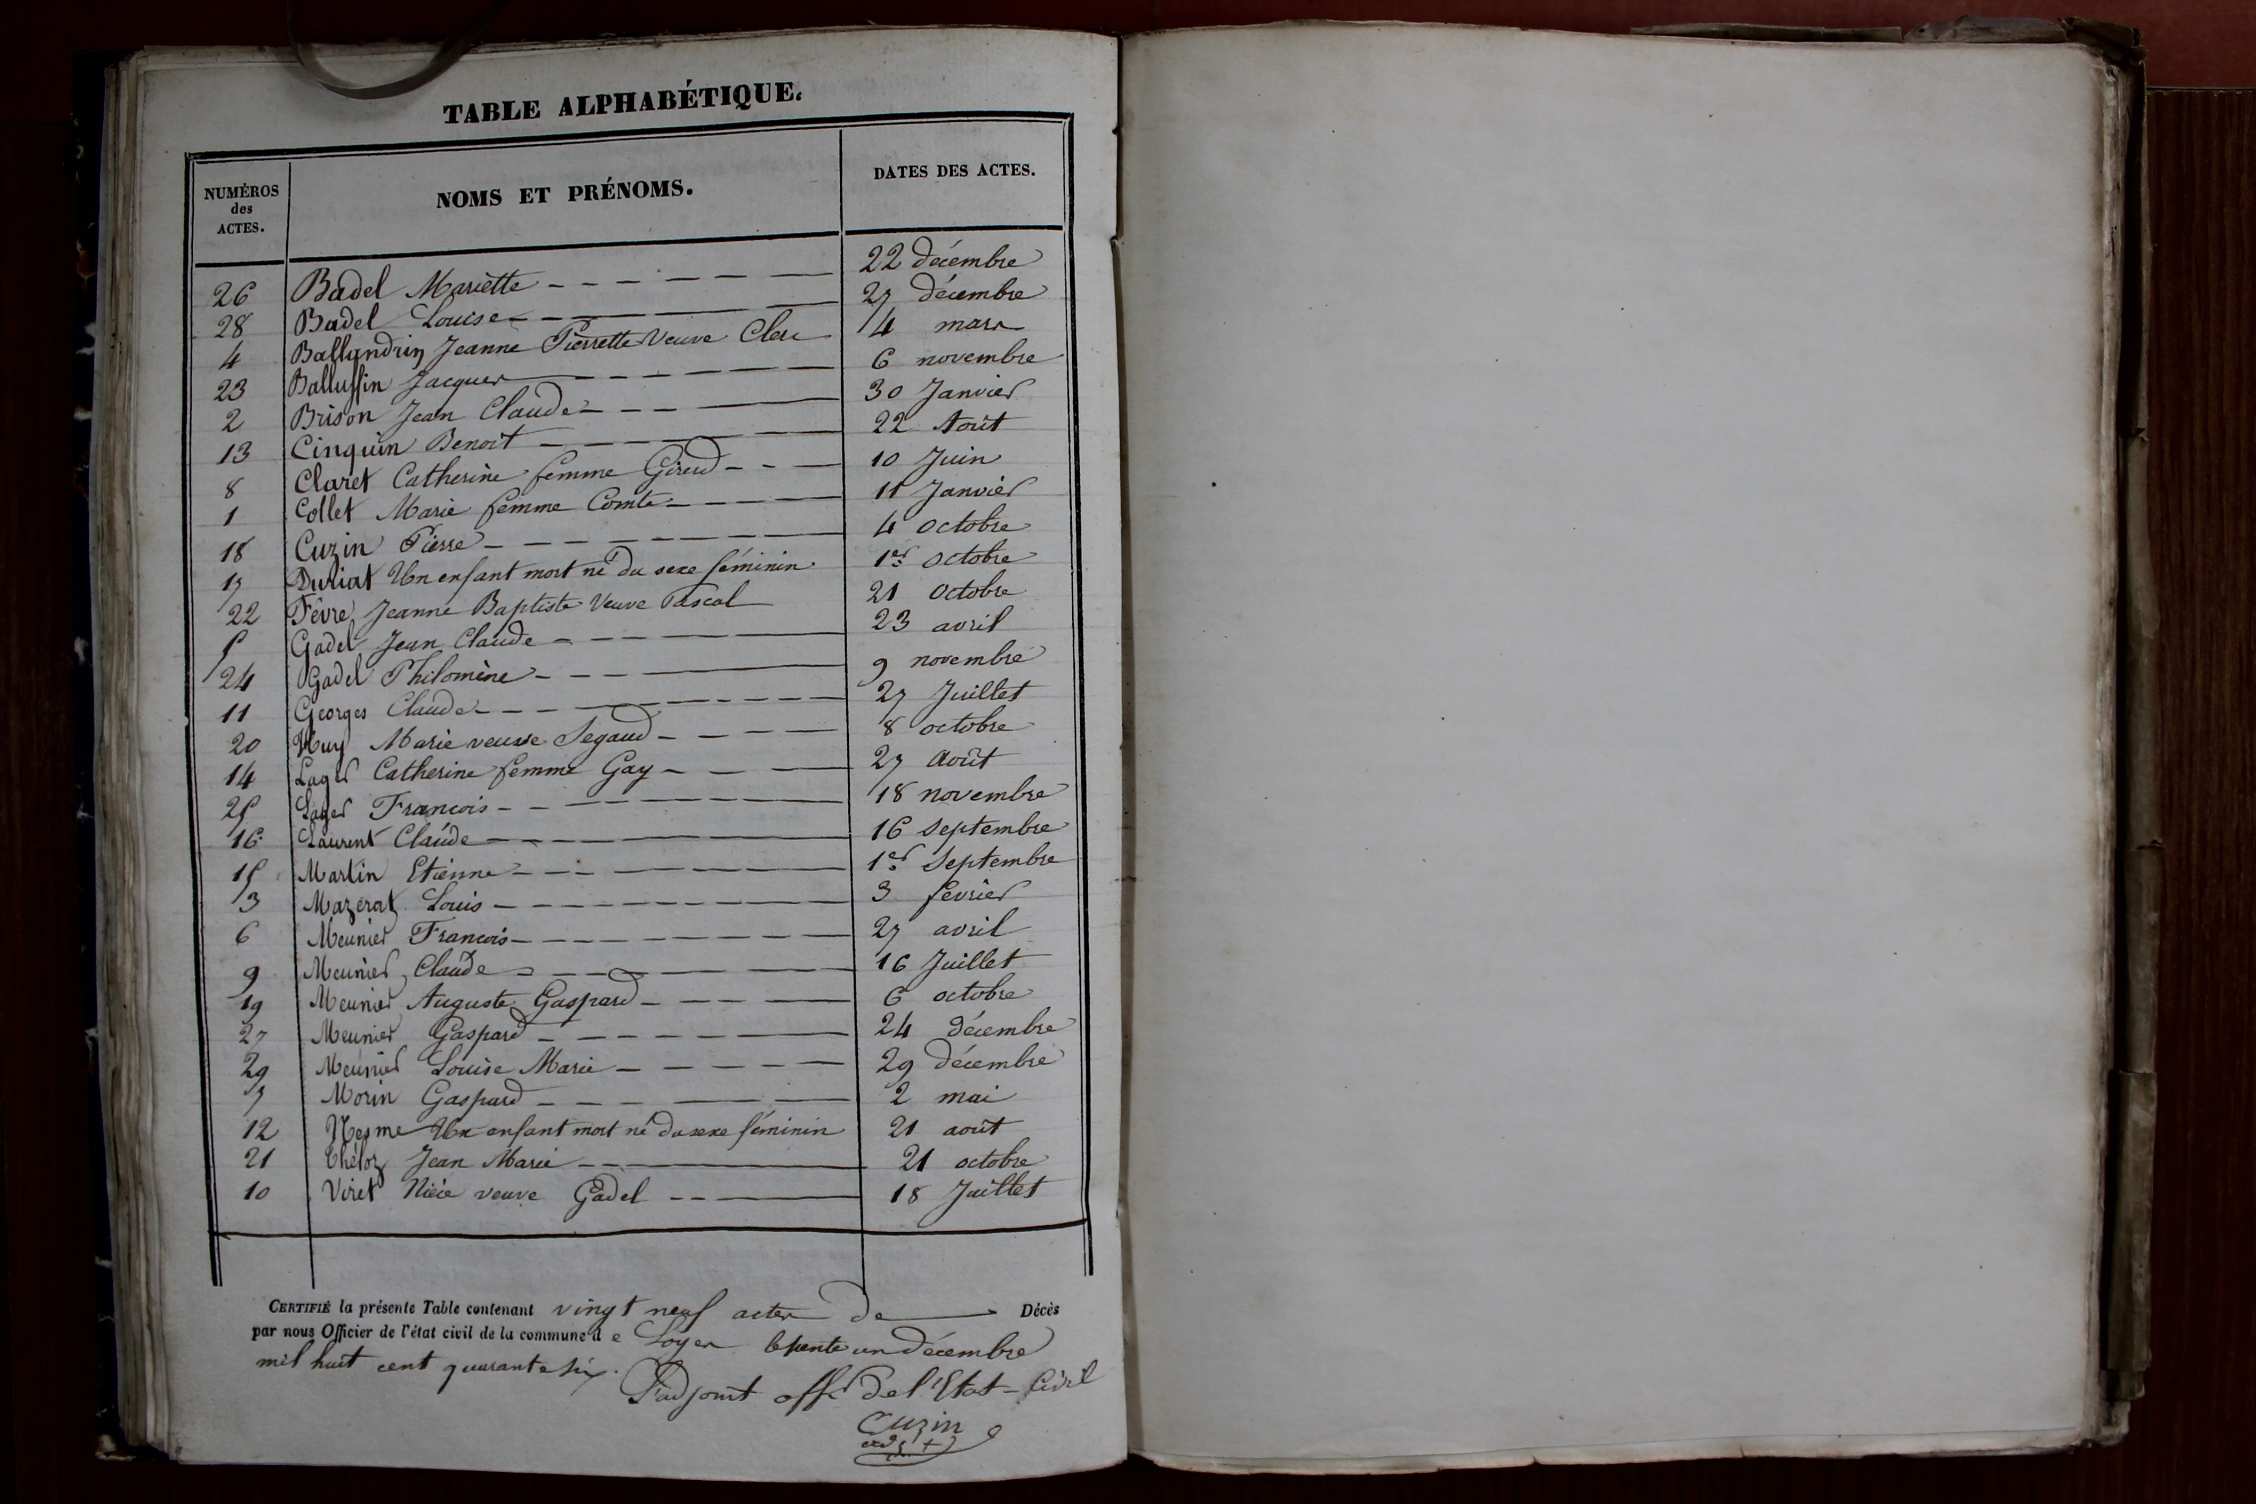 TABLE ALPHABÉTIQUE.
NUMÉROS des ACTES. NOMS ET PRÉNOMS. DATES DES ACTES.
26 Badel Mariette 22 décembre
28 Badel Louise 27 décembre
4 Ballandrin Jeanne Pierrette Veuve Clerc 4 mars
23 Balluffin Jacques 6 novembre
2 Brison Jean Claude 30 Janvier
13 Cinquin Benoit 22 Août
8 Claret Catherine femme Giraud 10 Juin
1 Collet Marie femme Comte 11 Janvier
18 Cuzin Pierre 4 octobre
17 Duriat Un enfant mort né du sexe féminin 1er octobre
22 Fèvre Jeanne Baptiste Veuve Pascal 21 Octobre
5 Gadel Jean Claude 23 avril
24 Gadel Philomène 9 novembre
11 Georges Claude 27 Juillet
20 Huy Marie veuve Segaud 8 octobre
14 Lager Catherine femme Gay 27 Août
25 Lager François 18 novembre
16 Laurent Claude 16 septembre
15 Martin Etienne 1er septembre
3 Mazerat Louis 3 février
6 Meunier François 27 avril
9 Meunier Claude 16 Juillet
19 Meunier Auguste Gaspard 6 octobre
27 Meunier Gaspard 24 décembre
29 Meunier Louise Marie 29 décembre
7 Morin Gaspard 2 mai
12 Nesme Un enfant mort né du sexe féminin 21 août
21 Théloz Jean Marie 21 octobre
10 Viret veuve Gadel 18 Juillet
CERTIFIÉ la présente Table contenant vingt neuf actes de Décès
par nous Officier de l'état civil de la commune de Loyes le trente un décembre
mil huit cent quarante six.
L'adjoint offr de l'Etat-Civil
Cuzin